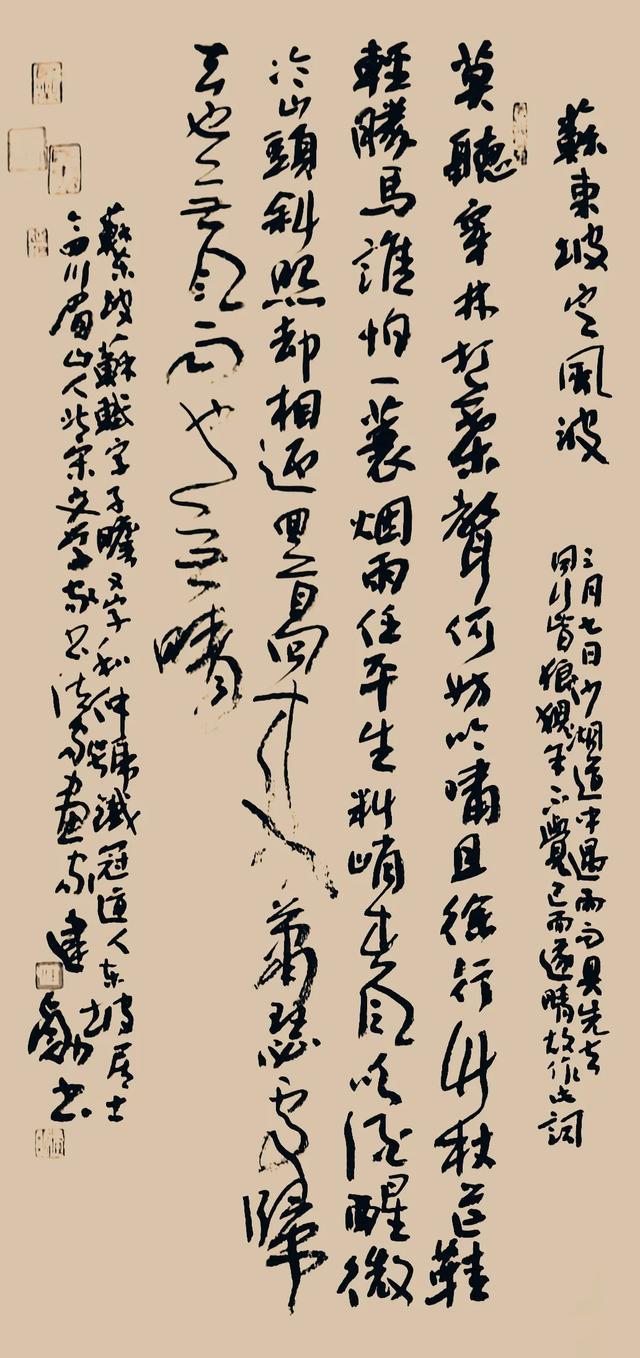 蘇東坡定風波
三月七日沙湖道中遇雨雨具先去
同行皆狼狽余不覺已而遂晴故作此詞
莫聽穿林打葉聲何妨吟嘯且徐行竹杖芒鞋
輕勝馬誰怕一蓑烟雨任平生料峭春風吹酒醒微
冷山頭斜照却相迎回首向來蕭瑟處歸
去也無風雨也無晴
蘇東坡蘇軾字子瞻又字和仲號鐵冠道人東坡居士
今四川眉山人北宋文學家書法家畫家建書